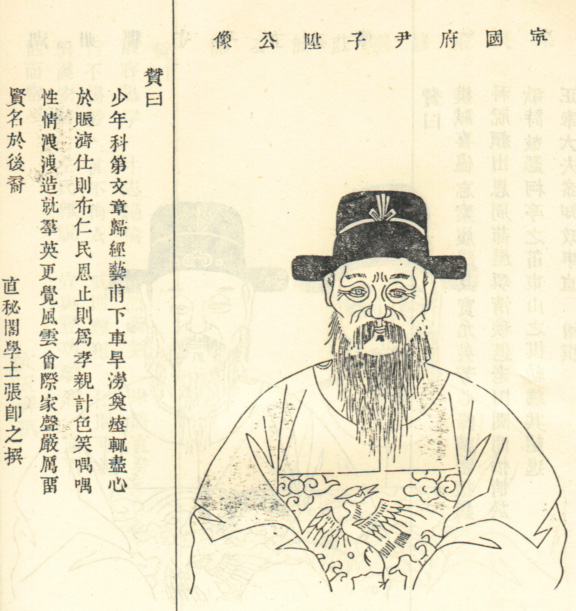 寧國府尹子陞公像
贊曰
少年科第文章歸經藝甫下車旱澇奠瘞輒盡心
於賑濟仕則布仁民恩止則爲孝親計色笑喁喁
性情洩洩造就羣英更覺風雲會際家聲嚴厲畱
賢名於後裔
直秘閣學士張卽之撰